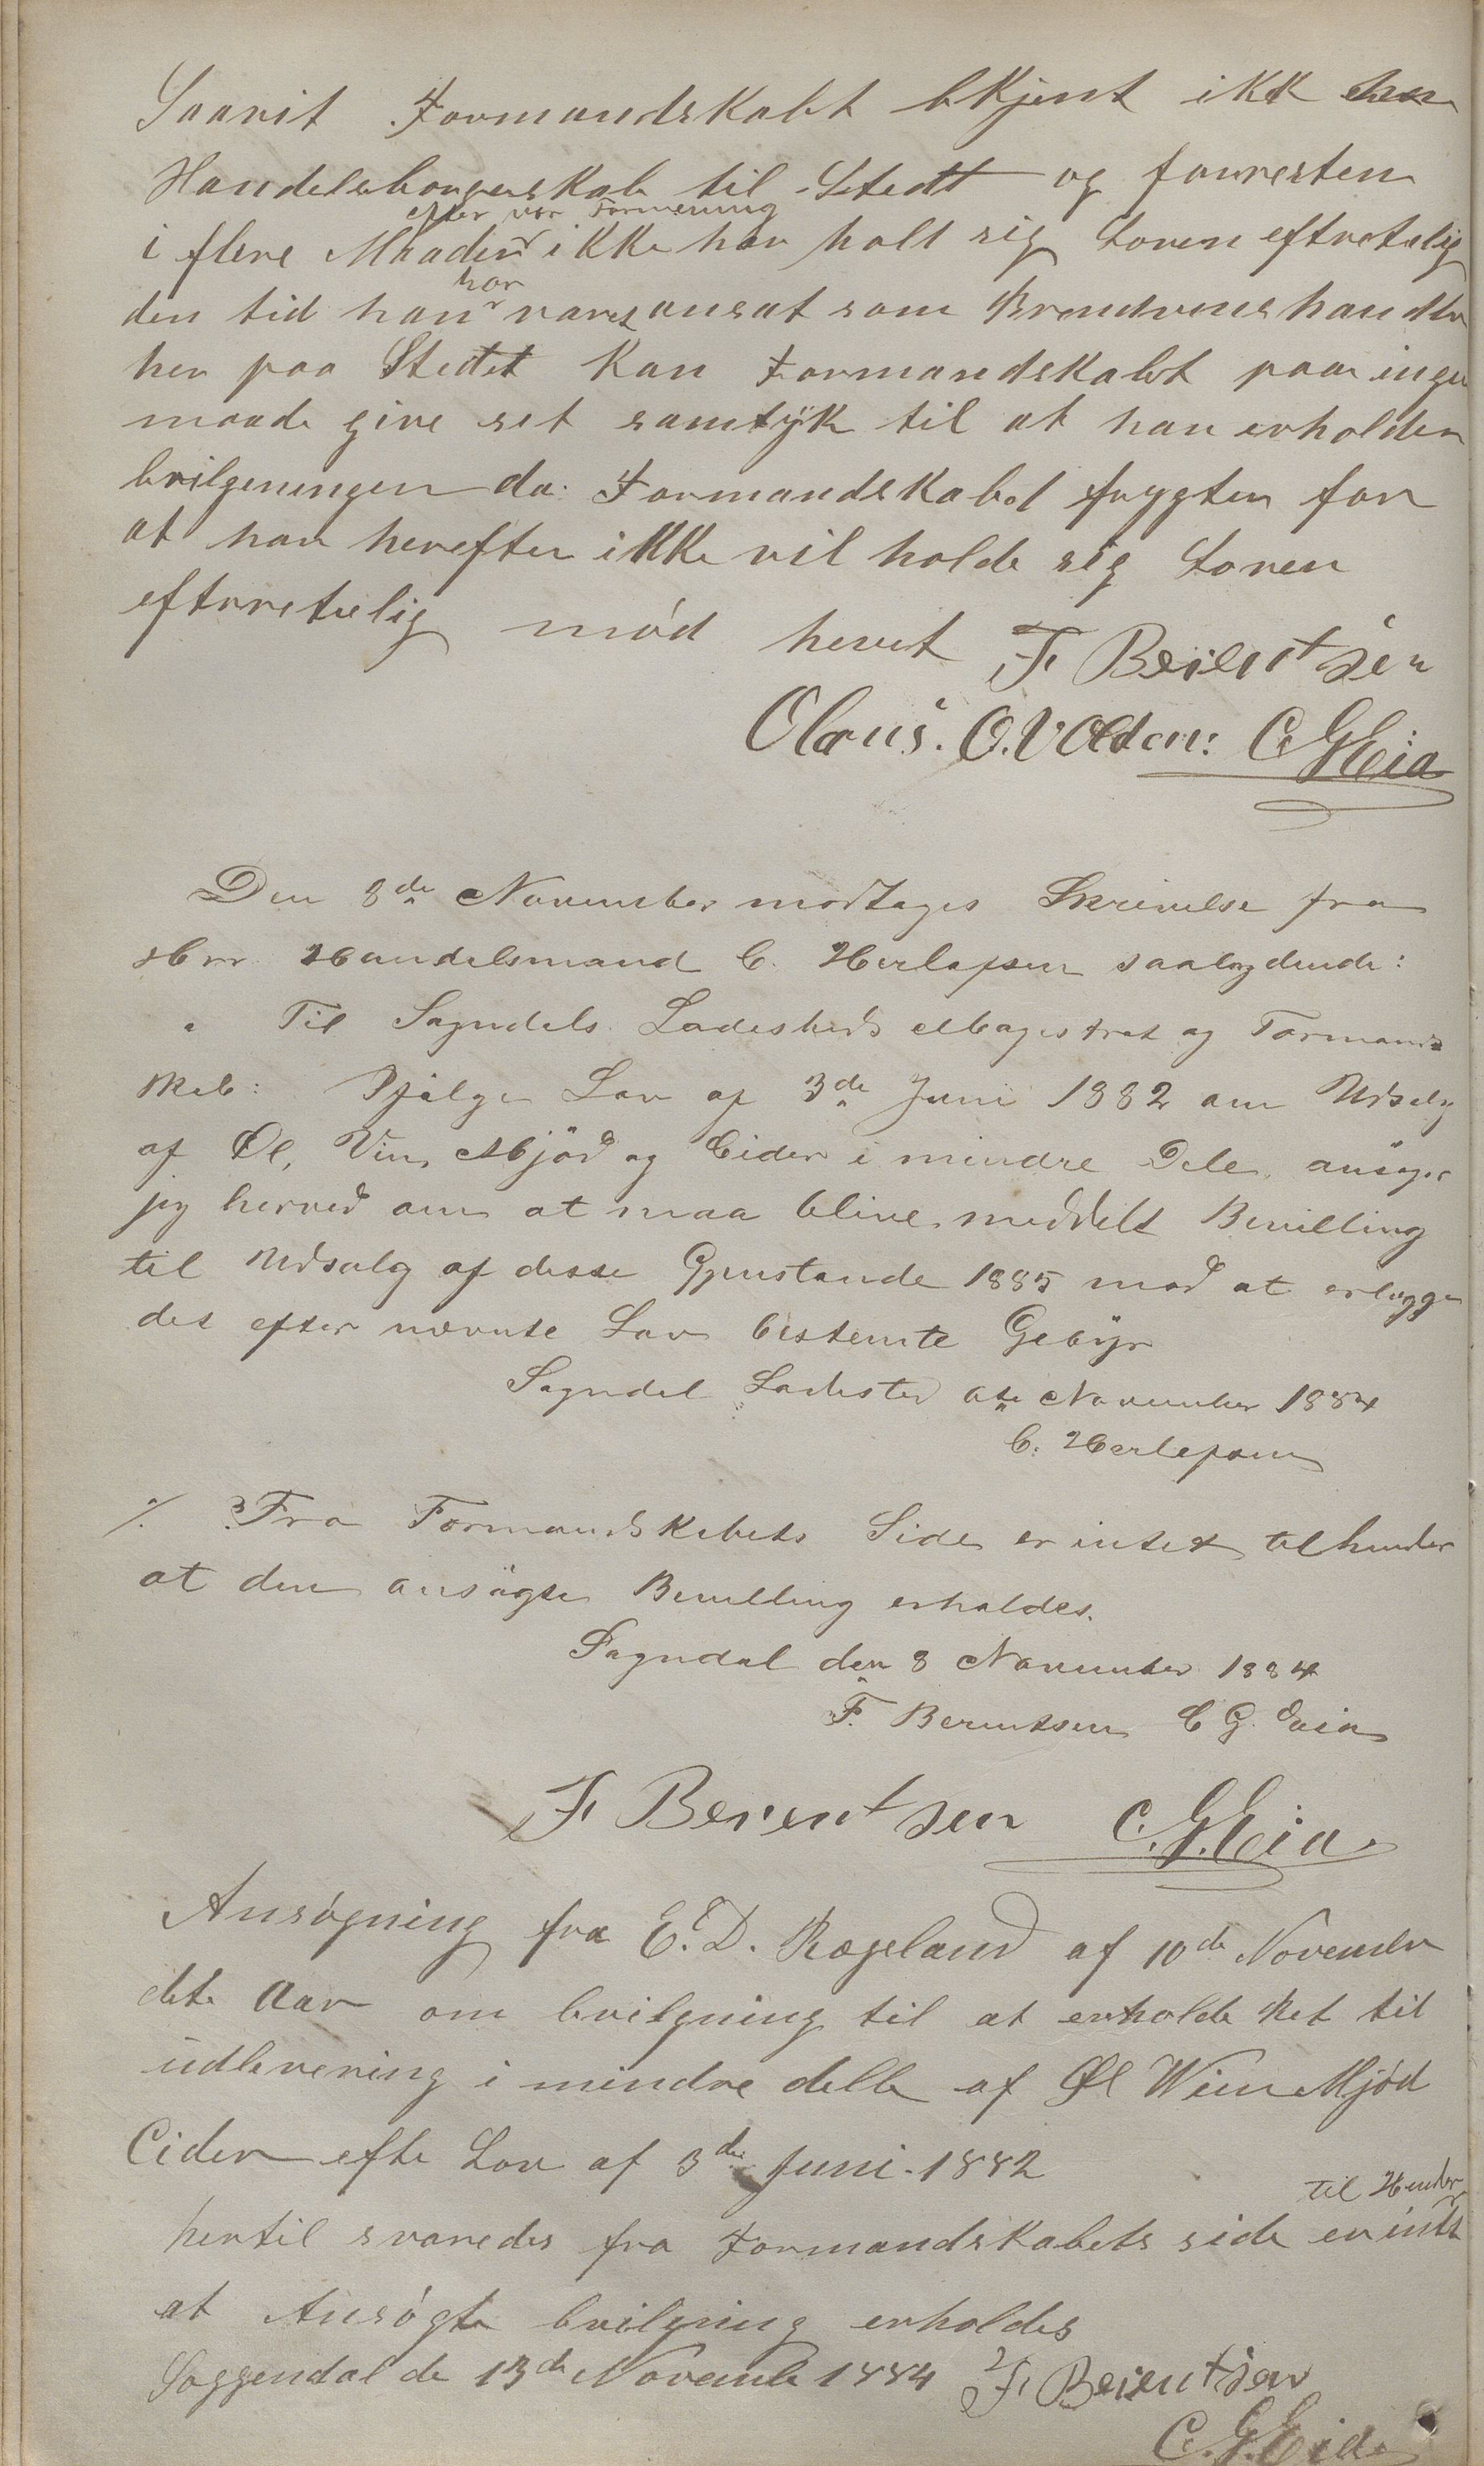 Saavit Formandskabet bkjent ikk
Handelsborgerskab til Stedt og forresten
efter vor Formening
i flere Maader ikke har holt sig Loven eftretelig
har
den tid han varet ansat som Brendvinshandler
her paa Stedet kan Formandskabet paa ingen
maade give set samtÿk til at han erholder
bvilgeningen da Formandskabed frygter for
at han herefter ikke vil holde sig Loven
eftrretelig mód hevet F Berentsen
Claus. O. Volden: C G Eia
Den 8de November modtages Skrivelse fra
Herr Handelsmand C. Herlofsen saalydende:
" Til Sogndals Ladesteds Magistrat og Formand
skab: Ifølge Lov af 3de Juni 1882 om Udsalg
af Øl, Vin, Mjöd og Cider i mindre Dele, ansøger
jeg herved om at maa blive meddelt Bevilling
til Udsalg af disse Gjenstande 1885 mod at erlegge
det efter nævnte Lov bestemte Gebÿr
Sogndal Ladested November 1884
C. Herlofsen
./. Fra Formandskabets Side er intet tilhinder
at den ansögte Bevilling erholdes.
Sogndal den 8 November 1884
F. Berentsen C G. Eia
F Berentsen C. G. Eia
Ansógning fra E. D. Rægeland af 10de November
dete Aar om bvilgning til at erholde Ret til
udlevering i mindre delle af Øl Wiin Mjód
Cider efte Lov af 3de Juni 1882
til Hender
hertil svaredes fra Formandskabets side er intet
at Ansógte bvilgning erholdes
Soggendal de 13de Novembr 1884 F. Berentsen
C. G. Eide